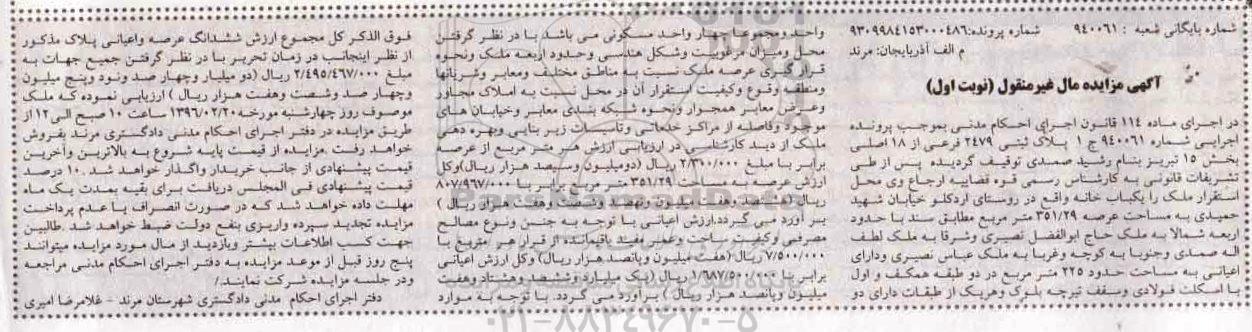 شماره بایگانی شعبه : ۹۴۰۰۶۱ شماره پرونده:۹۳۰۹۹۸۴۱۵۳۰۰۰۴۸۶
م الف آذربایجان: مرند
آگهی مزایده مال غیرمنقول (نوبت اول)
در اجرای ماده ۱۱۴ قانون اجرای احکام مدنی بموجب پرونده
اجرایی شماره ۹۴۰۰۶۱ ج ۱ پلاک ثبتی ۲۴۷۹ فرعی از ۱۸ اصلی
بخش ۱۵ تبریز بنام رشید صمدی توقیف گردیده پس از طی
تشریفات قانونی به کارشناس رسمی قوه قضاییه ارجاع وی محل
استقرار ملک را یکباب خانه واقع در روستای اردکلو خیابان شهید
حمیدی به مساحت عرصه ۳۵۱/۲۹ متر مربع مطابق سند با حدود
اربعه شمالا به ملک حاج ابوالفضل نصیری وشرقا به ملک لطف
اله صمدی وجنوبا به کوچه وغربا به ملک عباس نصیری ودارای
اعیانی به مساحت حدود ۲۲۵ متر مربع در دو طبقه همکف و اول
با اسکلت فولادی وسقف تیرچه بلوک وهریک از طبقات دارای دو
واحد ومجموعا چهار واحد مسکونی می باشد با در نظر گرفتن
محل ومیزان مرغوبیت وشکل هندسی وحدود اربعه ملک ونحوه
قرار گیری عرصه ملک نسبت به مناطق مختلف ومعابر وشریانها
ومنطقه وقوع وکیفیت استقرار آن در محل نسبت به املاک مجاور
وعرض معابر همجوار ونحوه شبکه بندی معابر وخیابان های
موجود وفاصله از مراکز خدماتی وتاسیسات زیر بنایی وبهره دهی
ملک از دید کارشناسی در ارزیابی ارزش هر متر مربع از عرصه
برابر با مبلغ ۲/۳۰۰/۰۰۰ ریال (دومیلیون وسیصد هزار ریال)وکل
ارزش عرصه به مساحت ۳۵۱/۲۹ متر مربع برابر با ۸۰۷/۹۶۷/۰۰۰
ریال (هشتصد وهفت میلیون ونهصد وشصت وهفت هزار ریال )
بر آورد می گردد.ارزش اعیانی با توجه به جنس ونوع مصالح
مصرفی وکیفیت ساخت وعمر مفید باقیمانده از قرار هر مترمربع با
۷/۵۰۰/۰۰۰ ریال (هفت میلیون وپانصد هزار ریال) وکل ارزش اعیانی
برابر با ۱/۶۸۷/۵۰۰/۰۰۰ ریال (یک میلیارد وششصد وهشتاد وهفت
میلیون وپانصد هزار ریال ) برآورد می گردد. با توجه به موارد
فوق الذکر کل مجموع ارزش ششدانگ عرصه واعیانی پلاک مذکور
از نظر اینجانب در زمان تحریر با در نظر گرفتن جمیع جهات به
مبلغ ۲/۴۹۵/۴۶۷/۰۰۰ ریال (دو میلیار وچهار صد ونود وپنج میلیون
وچهار صد وشصت وهفت هزار ریال ) ارزیابی نموده که ملک
موصوف روز چهارشنبه مورخه ۱۳۹۶/۰۲/۲۰ ساعت ۱۰ صبح الی ۱۲ از
طریق مزایده در دفتر اجرای احکام مدنی دادگستری مرند بفروش
خواهد رفت .مزایده از قیمت پایه شروع به بالاترین وآخرین
قیمت پیشنهادی از جانب خریدار واگذار خواهد شد .۱۰ درصد
قیمت پیشنهادی فی المجلس دریافت برای بقیه بمدت یک ماه
مهلت داده خواهد شد که در صورت انصراف یا عدم پرداخت
مزایده تجدید سپرده واریزی بنفع دولت ضبط خواهد شد .طالبین
جهت کسب اطلاعات بیشتر وبازدید از مال مورد مزایده میتوانند
پنج روز قبل از موعد مزایده به دفتر اجرای احکام مدنی مراجعه
ودر جلسه مزایده شرکت نمایند./
دفتر اجرای احکام مدنی دادگستری شهرستان مرند - غلامرضا امیری
۰۲۱-۸۸۳۴۹۶۷۰-۵